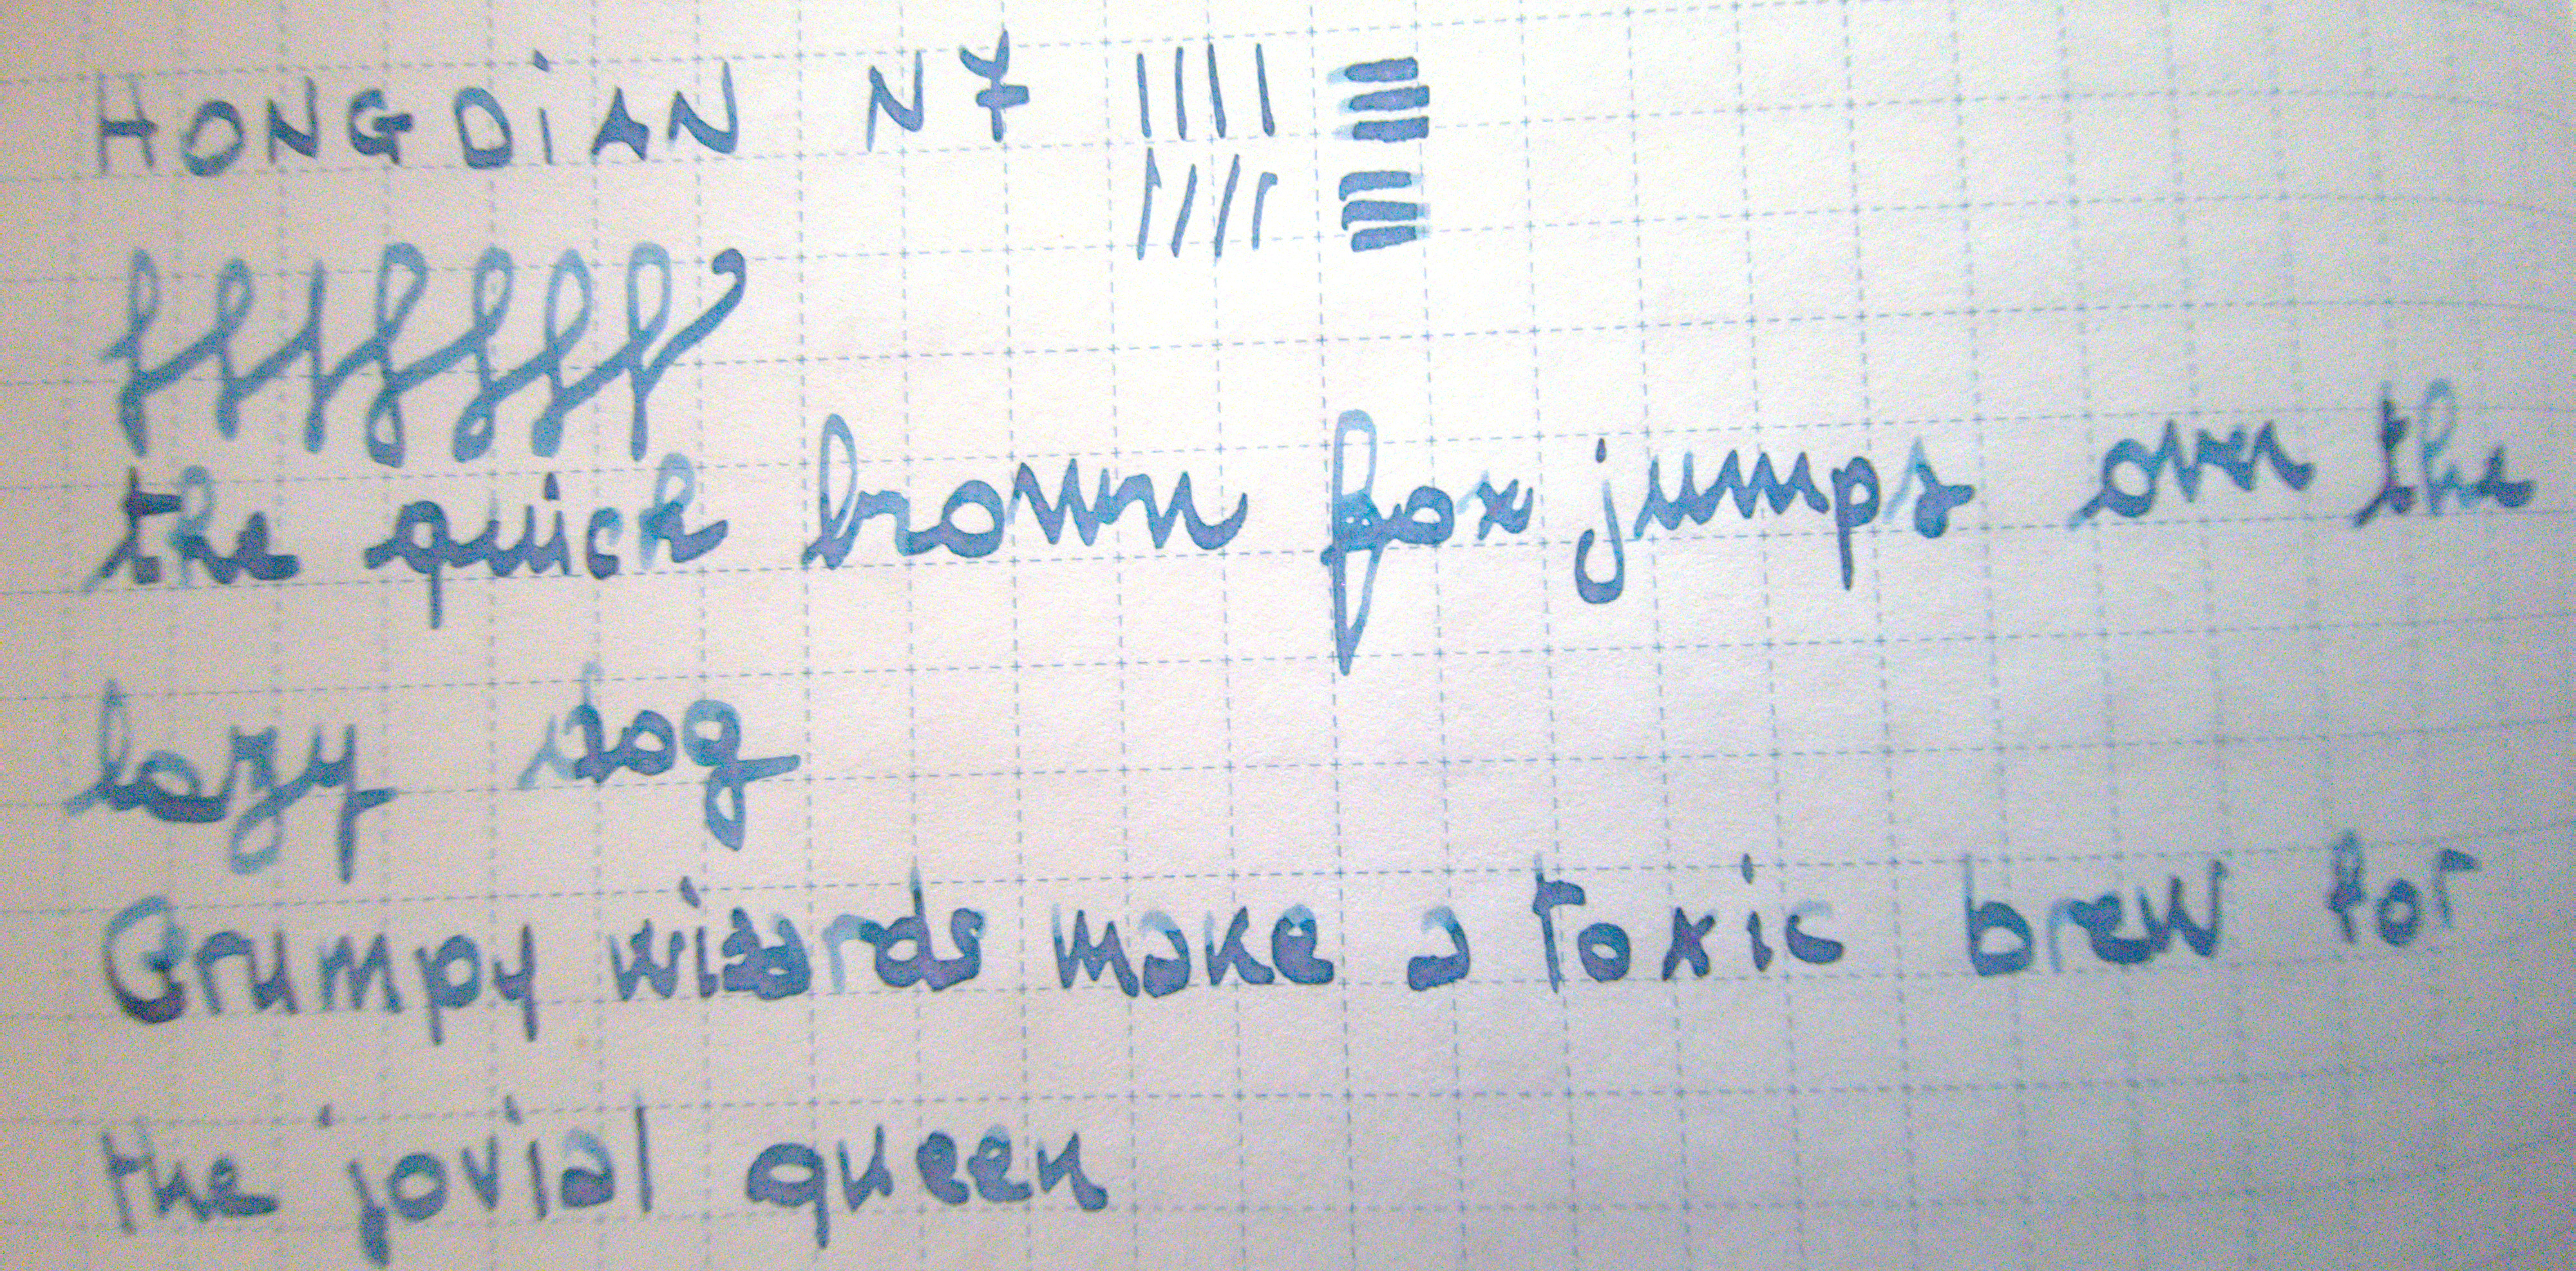 HONGDiAN N7
fffffff
the quick brown fox jumps over the
lazy dog
Grumpy wizards make a toxic brew for
the jovial queen